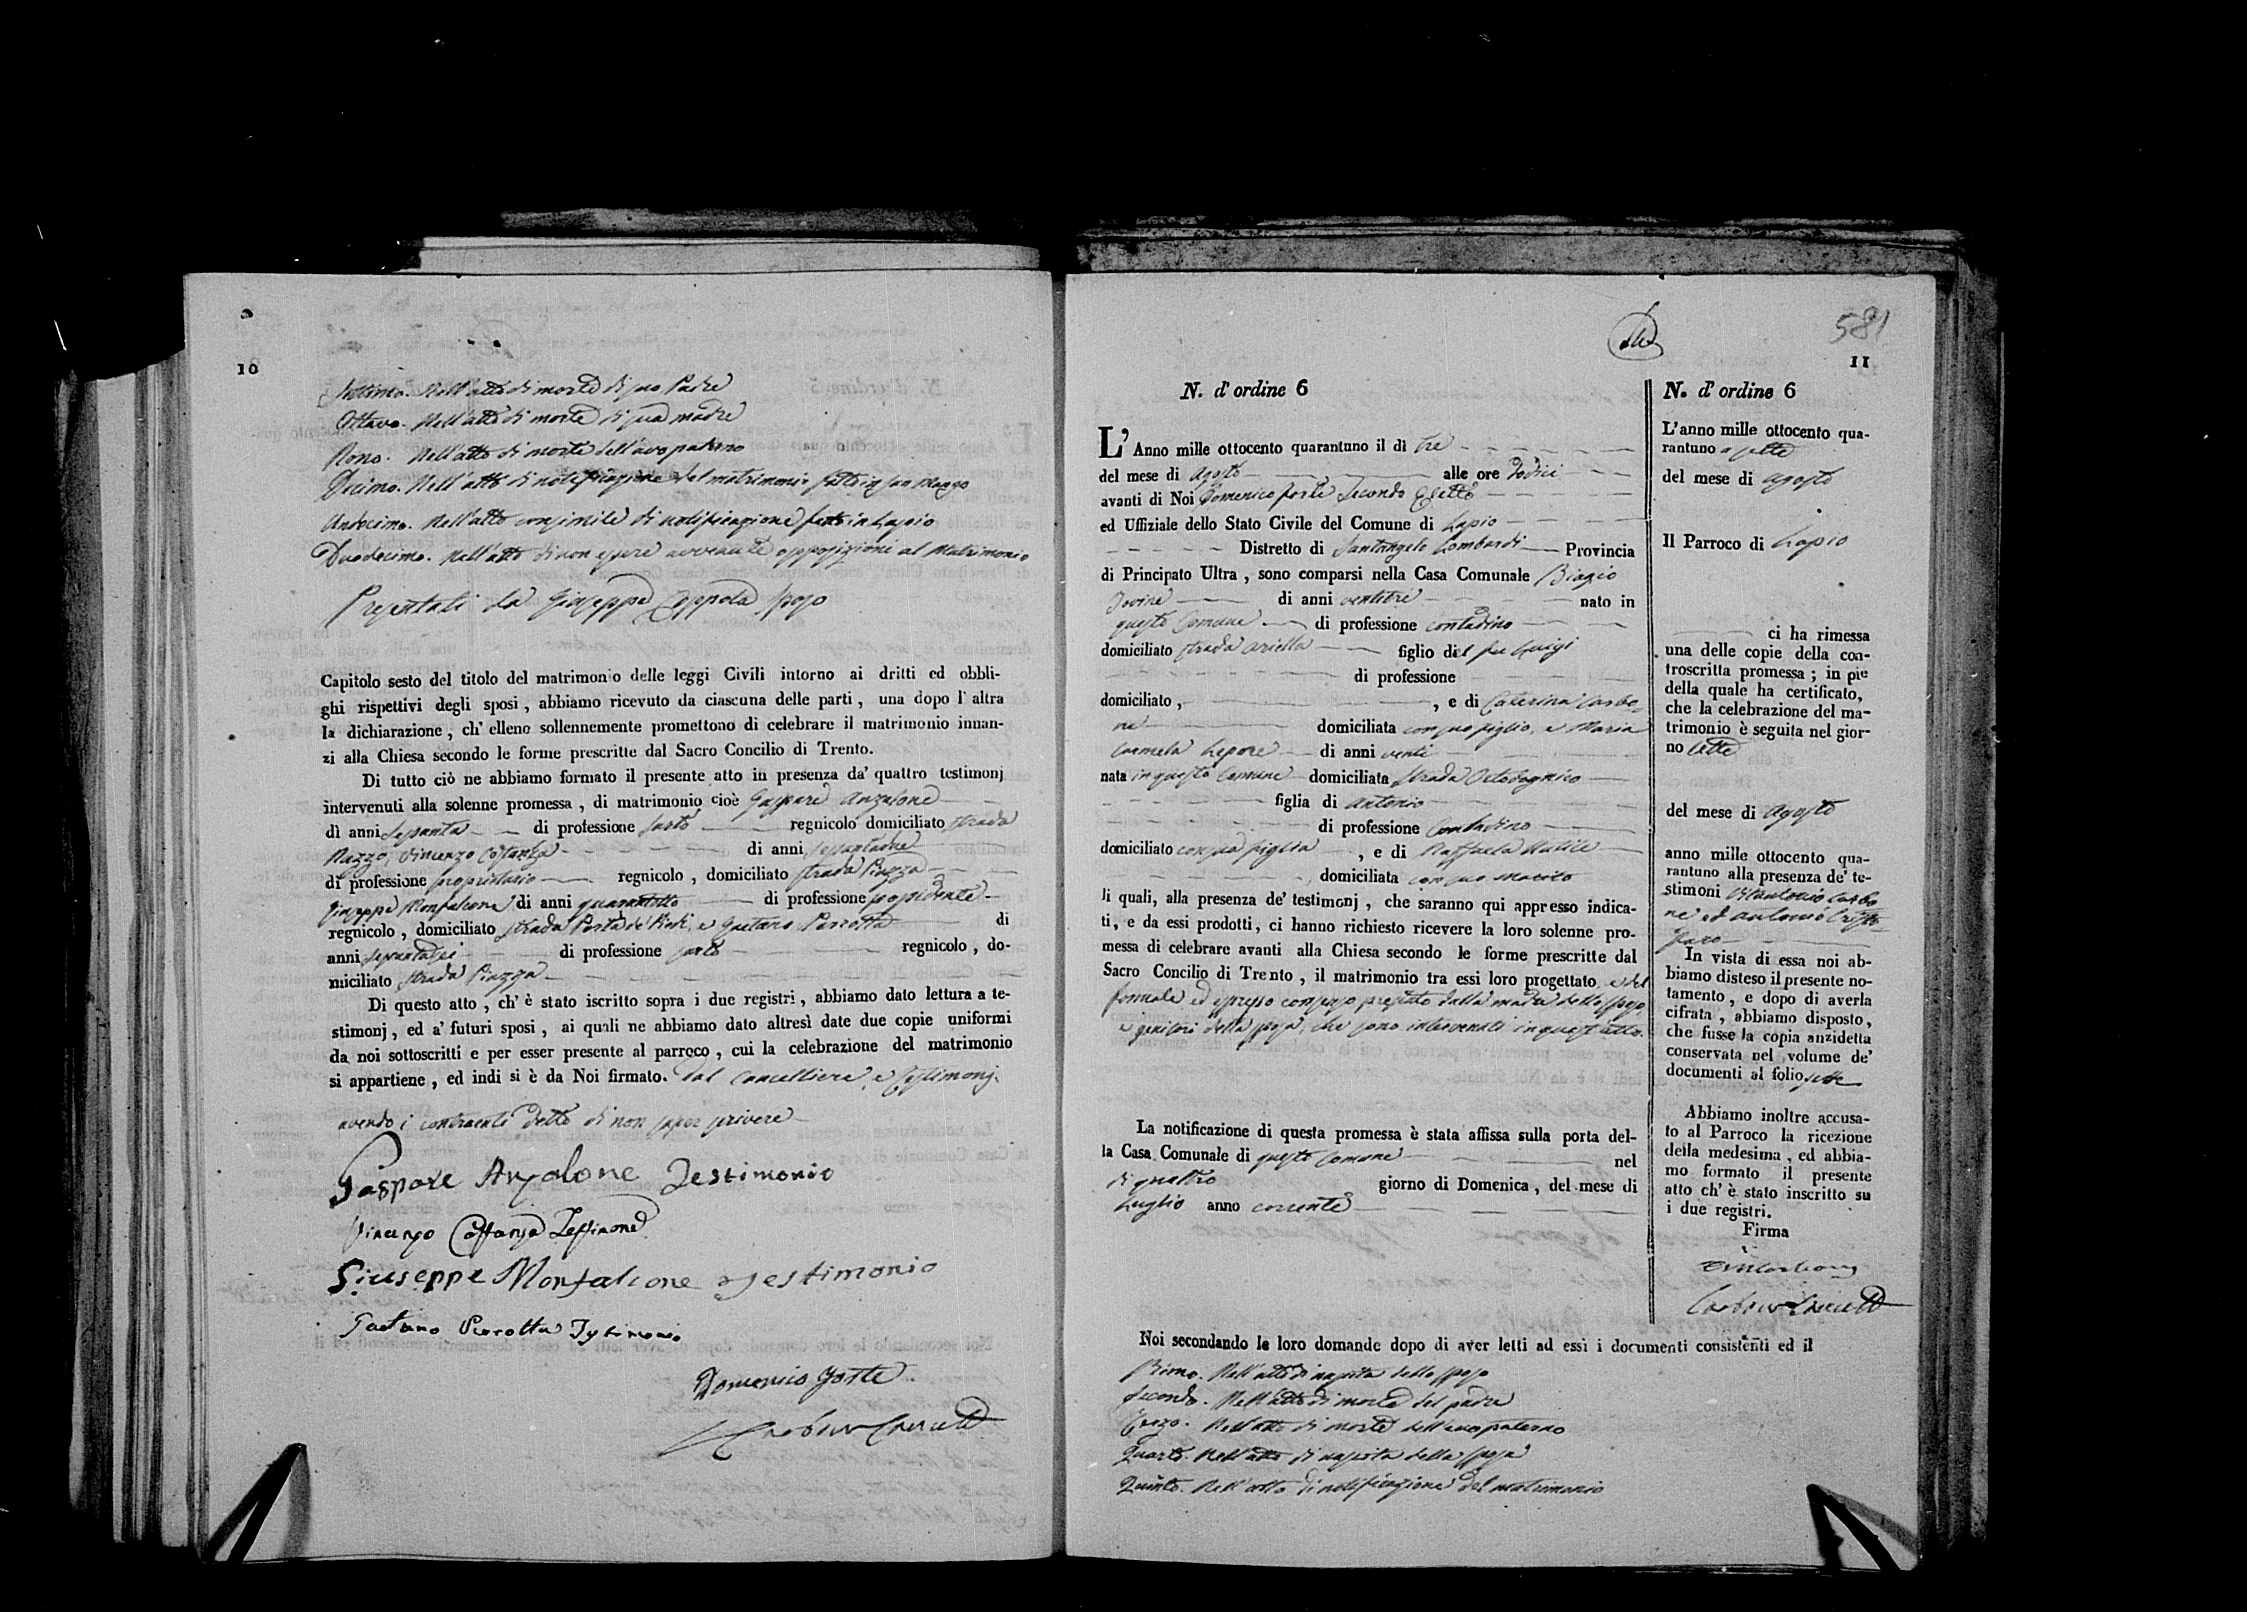 10
Settimo. Nell'atto di morte di suo Padre
Ottavo. Nell'atto di morte di sua madre
Nono. Nell'atto di morte dell'avo paterno
Decimo. Nell'atto di notificazione del matrimonio fatto in San Mango
Undecimo. Nell'atto consimile di notificazione fatto in Lapio
Duodecimo. Nell'atto di non essere avvenute opposizioni al Matrimonio
Presentati da Giuseppe Coppola sposo
Capitolo sesto del titolo del matrimonio delle leggi Civili intorno ai dritti ed obbli-
ghi rispettivi degli sposi, abbiamo ricevuto da ciascuna delle parti, una dopo l'altra
la dichiarazione, ch' elleno sollennemente promettono di celebrare il matrimonio innan-
zi alla Chiesa secondo le forme prescritte dal Sacro Concilio di Trento.
Di tutto ciò ne abbiamo formato il presente atto in presenza da' quattro testimonj
intervenuti alla solenne promessa, di matrimonio cioè Gaspare Anzalone
di anni sessanta di professione sarto regnicolo domiciliato strada
Vincenzo Costanza di anni
di professione proprietario regnicolo, domiciliato strada Piazza
Giuseppe Monfalcone di anni quarantotto di professione possidente
regnicolo, domiciliato strada Porta de' e Gaetano Pierrotta di
anni sessantasei di professione sarto regnicolo, do-
miciliato strada Piazza
Di questo atto, ch' è stato iscritto sopra i due registri, abbiamo dato lettura a te-
stimonj, ed a' futuri sposi, ai quali ne abbiamo dato altresì date due copie uniformi
da noi sottoscritti e per esser presente al parroco, cui la celebrazione del matrimonio
si appartiene, ed indi si è da Noi firmato. dal Cancelliere, e testimonj.
avendo i contraenti detto di non saper scrivere
Gaspare Anzalone Testimonio
Vincenzo Costanza Testimone
Giuseppe Monfalcone Testimonio
Gaetano Pierrotta Testimonio
Domenico Forte
581
11
N. d' ordine 6
L' Anno mille ottocento quarantuno il dì tre
del mese di Agosto alle ore dodici
avanti di Noi Domenico Forte Secondo Eletto
ed Uffiziale dello Stato Civile del Comune di Lapio
Distretto di Santangelo Lombardi Provincia
di Principato Ultra, sono comparsi nella Casa Comunale Biagio
Iovine di anni ventitre nato in
questo Comune di professione contadino
domiciliato strada Ariella figlio del fu Luigi
di professione
domiciliato, , e di Caterina Carbo-
ne domiciliata con suo figlio, e Maria
Carmela Lepore di anni venti
nata in questo Comune domiciliata strada
figlia di Antonio
di professione Contadino
domiciliato con sua figlia , e di Raffaela
domiciliata con suo marito
li quali, alla presenza de' testimonj, che saranno qui appresso indica-
ti, e da essi prodotti, ci hanno richiesto ricevere la loro solenne pro-
messa di celebrare avanti alla Chiesa secondo le forme prescritte dal
Sacro Concilio di Trento, il matrimonio tra essi loro progettato e del
formale ed espresso consenso prestato dalla madre dello sposo,
e genitori della sposa, che sono intervenuti in quest'atto.
La notificazione di questa promessa è stata affissa sulla porta del-
la Casa Comunale di questo Comune nel
dì quattro giorno di Domenica, del mese di
Luglio anno corrente
N. d' ordine 6
L'anno mille ottocento qua-
rantuno a sette
del mese di Agosto
Il Parroco di Lapio
ci ha rimessa
una delle copie della con-
troscritta promessa; in pie
della quale ha certificato,
che la celebrazione del ma-
trimonio è seguita nel gior-
no sette
del mese di Agosto
anno mille ottocento qua-
rantuno alla presenza de' te-
stimoni Carbo
ne ed Antonio
In vista di essa noi ab-
biamo disteso il presente no-
tamento, e dopo di averla
cifrata, abbiamo disposto,
che fusse la copia anzidetta
conservata nel volume de'
documenti al folio sette
Abbiamo inoltre accusa-
to al Parroco la ricezione
della medesima, ed abbia-
mo formato il presente
atto ch' è stato inscritto su
i due registri.
Firma
Noi secondando le loro domande dopo di aver letti ad essi i documenti consistenti ed il
Primo. Nell'atto di nascita dello sposo
Secondo. Nell'atto di morte del padre
Terzo. Nell'atto di morte dell'avo paterno
Quarto. Nell'atto di nascita della sposa
Quinto. Nell'atto di notificazione del matrimonio